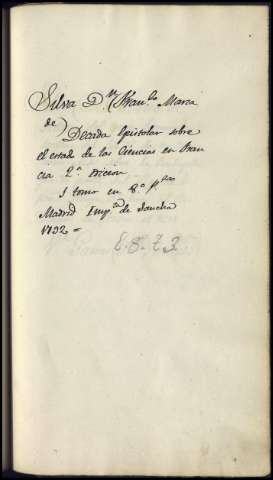 Silva D.ⁿ (Fran.co Maria
de)
Decada Epistolar sobre
el estado de las Ciencias en Fran
cia 2.ª edicion
1 tomo en 8.º p.ta
Madrid Imp.ta de Sancha
1792 =
E. 8. 73